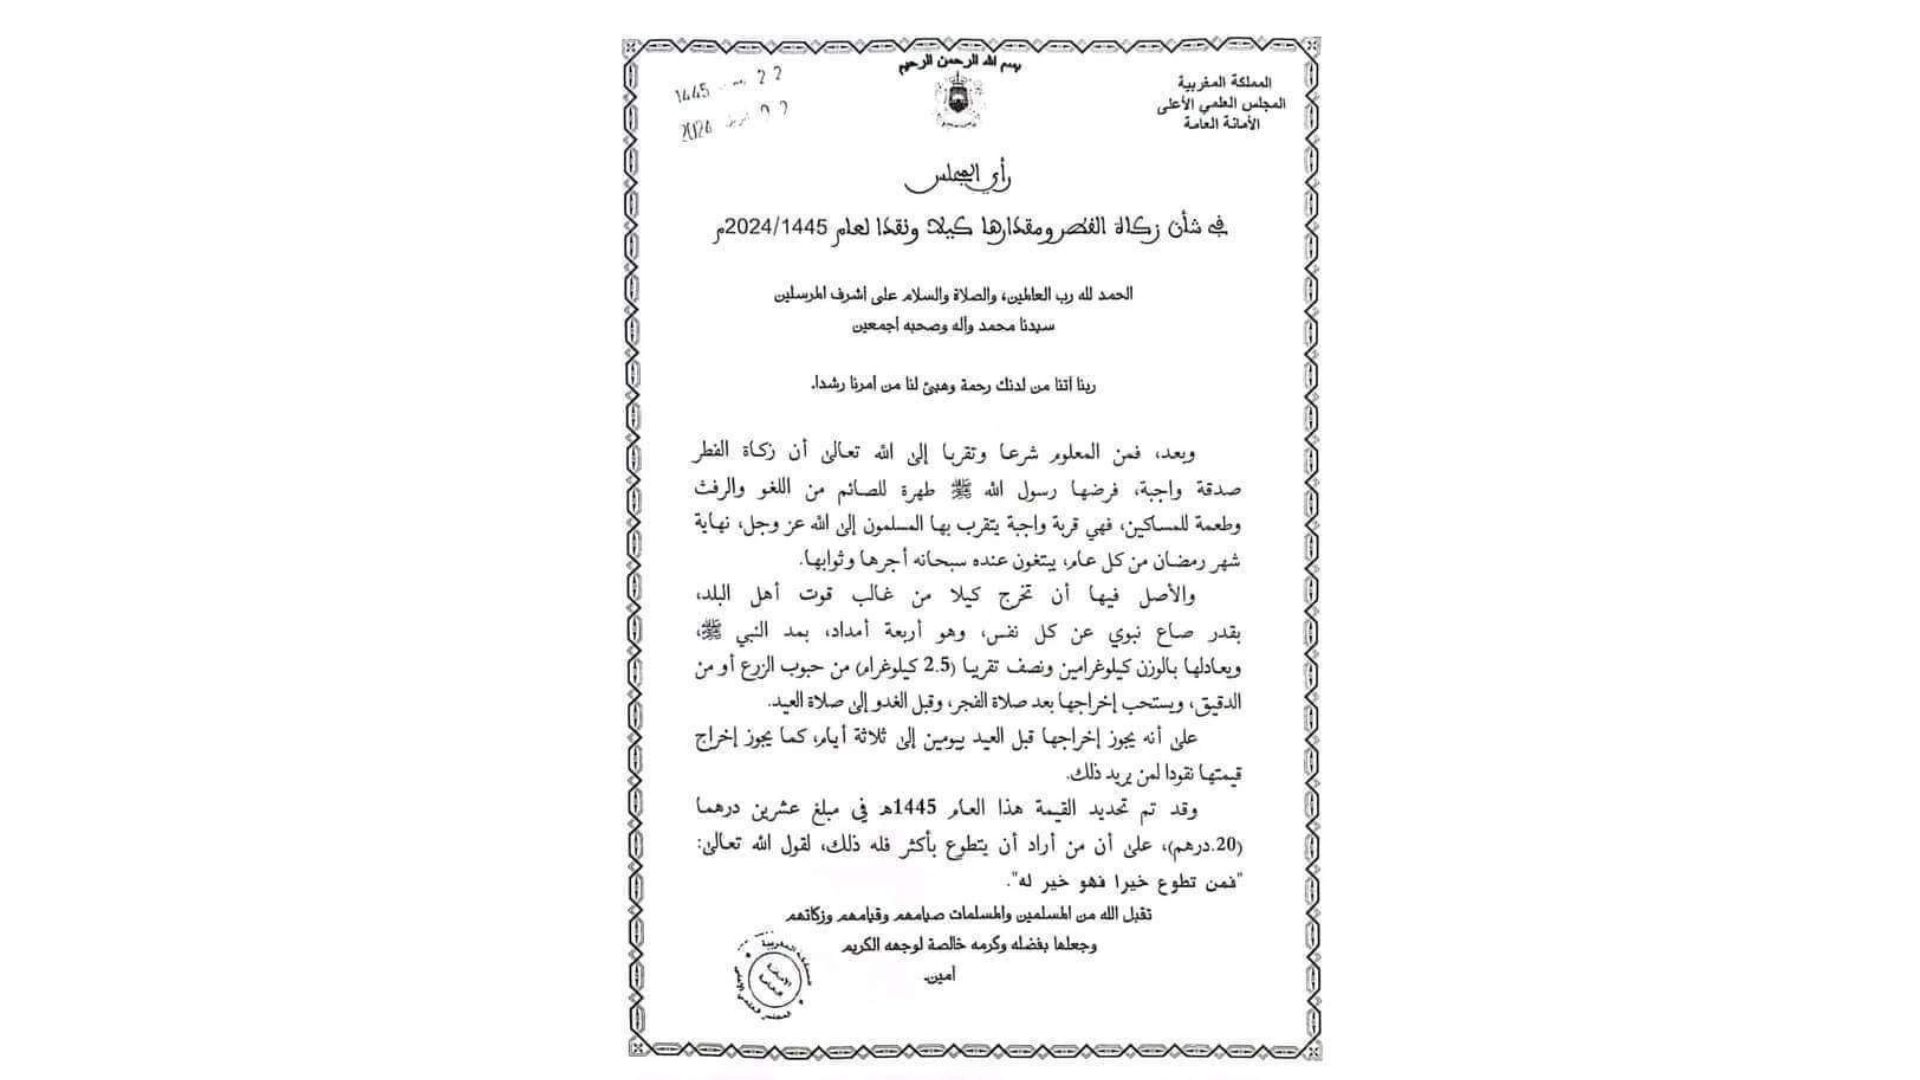 بسم الله الرحمن الرحيم
المملكة المغربية
المجلس العلمي الأعلى
الأمانة العامة
22 1445
2024
رأي المجلس
في شأن زكاة الفطر ومقدارها كيلا ونقدا لعام 2024/1445م
الحمد لله رب العالمين، والصلاة والسلام على أشرف المرسلين
سيدنا محمد وآله وصحبه أجمعين
ربنا آتنا من لدنك رحمة وهيئ لنا من أمرنا رشدا.
وبعد، فمن المعلوم شرعا وتقربا إلى الله تعالى أن زكاة الفطر
صدقة واجبة، فرضها رسول الله ﷺ طهرة للصائم من اللغو والرفث
وطعمة للمساكين، فهي قربة واجبة يتقرب بها المسلمون إلى الله عز وجل، نهاية
شهر رمضان من كل عام، يبتغون عنده سبحانه أجرها وثوابها.
والأصل فيها أن تخرج كيلا من غالب قوت أهل البلد،
بقدر صاع نبوي عن كل نفس، وهو أربعة أمداد، بمد النبي ﷺ،
ويعادلها بالوزن كيلوغرامين ونصف تقريبا (2.5 كيلوغرام) من حبوب الزرع أو من
الدقيق، ويستحب إخراجها بعد صلاة الفجر، وقبل الغدو إلى صلاة العيد.
على أنه يجوز إخراجها قبل العيد بيومين إلى ثلاثة أيام، كما يجوز إخراج
قيمتها نقودا لمن يريد ذلك.
وقد تم تحديد القيمة هذا العام 1445هـ في مبلغ عشرين درهما
(20.درهم)، على أن من أراد أن يتطوع بأكثر فله ذلك، لقول الله تعالى:
"فمن تطوع خيرا فهو خير له".
تقبل الله من المسلمين والمسلمات صيامهم وقيامهم وزكاتهم
وجعلها بفضله وكرمه خالصة لوجهه الكريم
آمين.
المجلس العلمي الأعلى
الأمانة
العامة